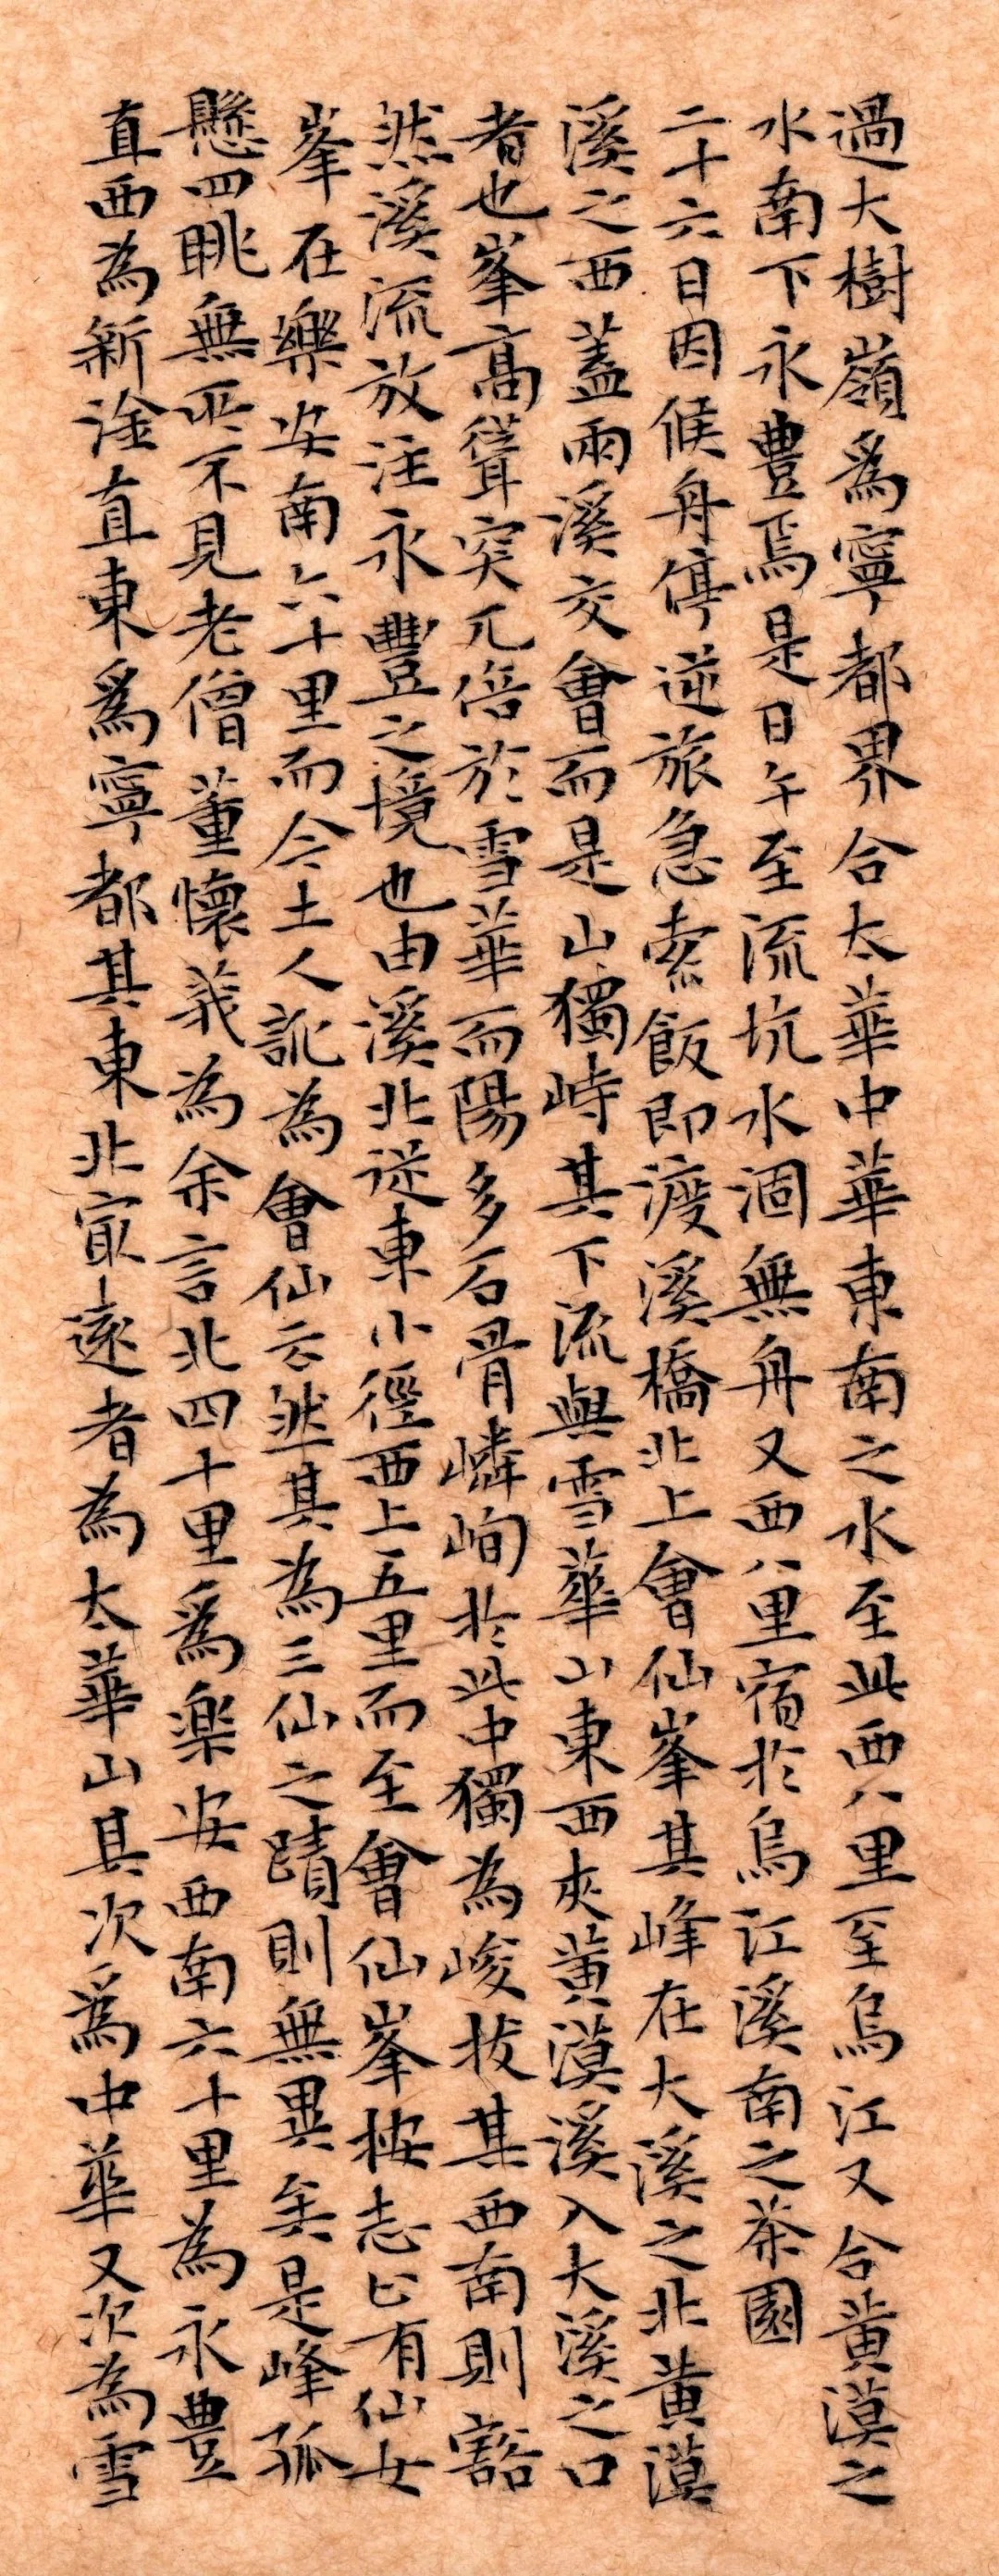 過大樹嶺爲寧都界合太華中華東南之水至此西八里至烏江又合黃漠之
水南下永豊焉是日午至流坑水涸無舟又西八里宿於烏江溪南之茶園
二十六日因候舟停逆旅急索飯即渡溪橋北上會仙峯其峰在大溪之北黃漠
溪之西蓋兩溪交會而是山獨峙其下流與雪華山東西夾黃漠溪入大溪之口
者也峯高聳突兀倍於雪華而陽多石骨嶙峋於此中獨為峻拔其西南則豁
然溪流放注永豐之境也由溪北從東小徑西上五里而至會仙峯按志止有仙女
峯在樂安南六十里而今土人訛為會仙云然其為三仙之蹟則無異矣是峰孤
懸四眺無所不見老僧董懷莪為余言北四十里爲樂安西南六十里為永豊
直西為新淦直東爲寧都其東北㝡遠者為太華山其次爲中華又次為雪